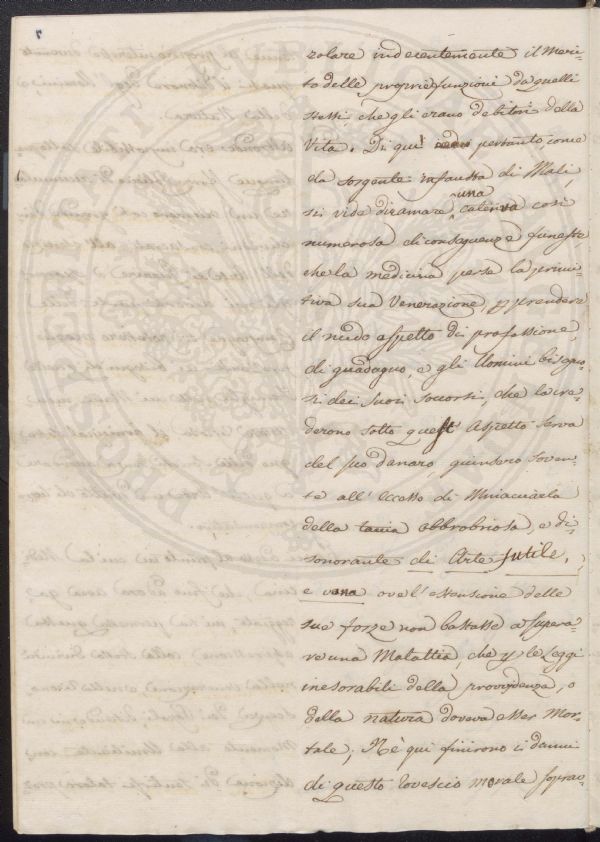 7
zolare indecentemente il Meri=
to delle proprie funzioni da quelli
stessi che gli erano debitori della
Vita. Di qui pertanto come
da sorgente infausta di Mali,
si vide diramare una caterva così
numerosa di conseguenze funeste
che la medicina perse la primi=
tiva sua Venerazione, p prendere
il nudo aspetto di professione,
di guadagno, e gli Uomini bisogno=
si dei suoi soccorsi, che la cre=
derono sotto quest Aspetto serva
del suo danaro, giunsero soven=
te all' eccesso di Minacciarla
della taccia obbrobriosa, e di=
sonorante di Arte futile,
e vana ove l' estensione delle
sue forze non bastasse a supera=
re una Malattia, che p le Leggi
inesorabili della providenza, o
della natura doveva esser Mor=
tale; Nè qui finirono i danni
di questo rovescio morale soprav=